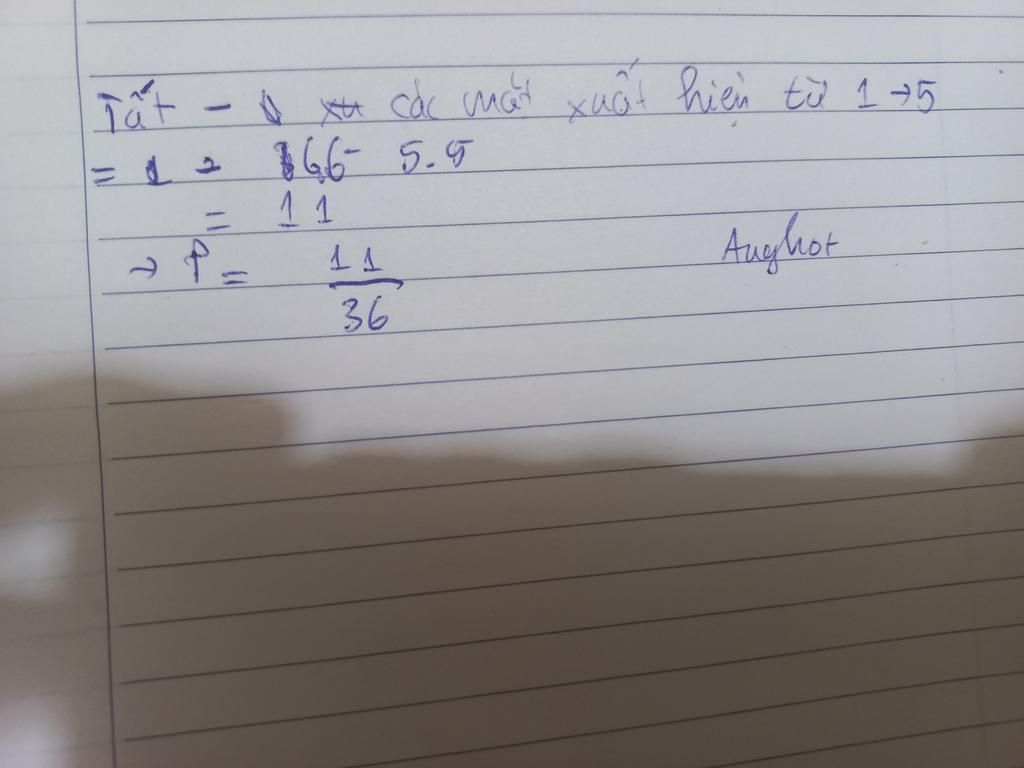 Tất - các mặt xuất hiện từ 1 → 5
= 1 - 6.6 - 5.5
= 11
→ P = 11/36
Aughot